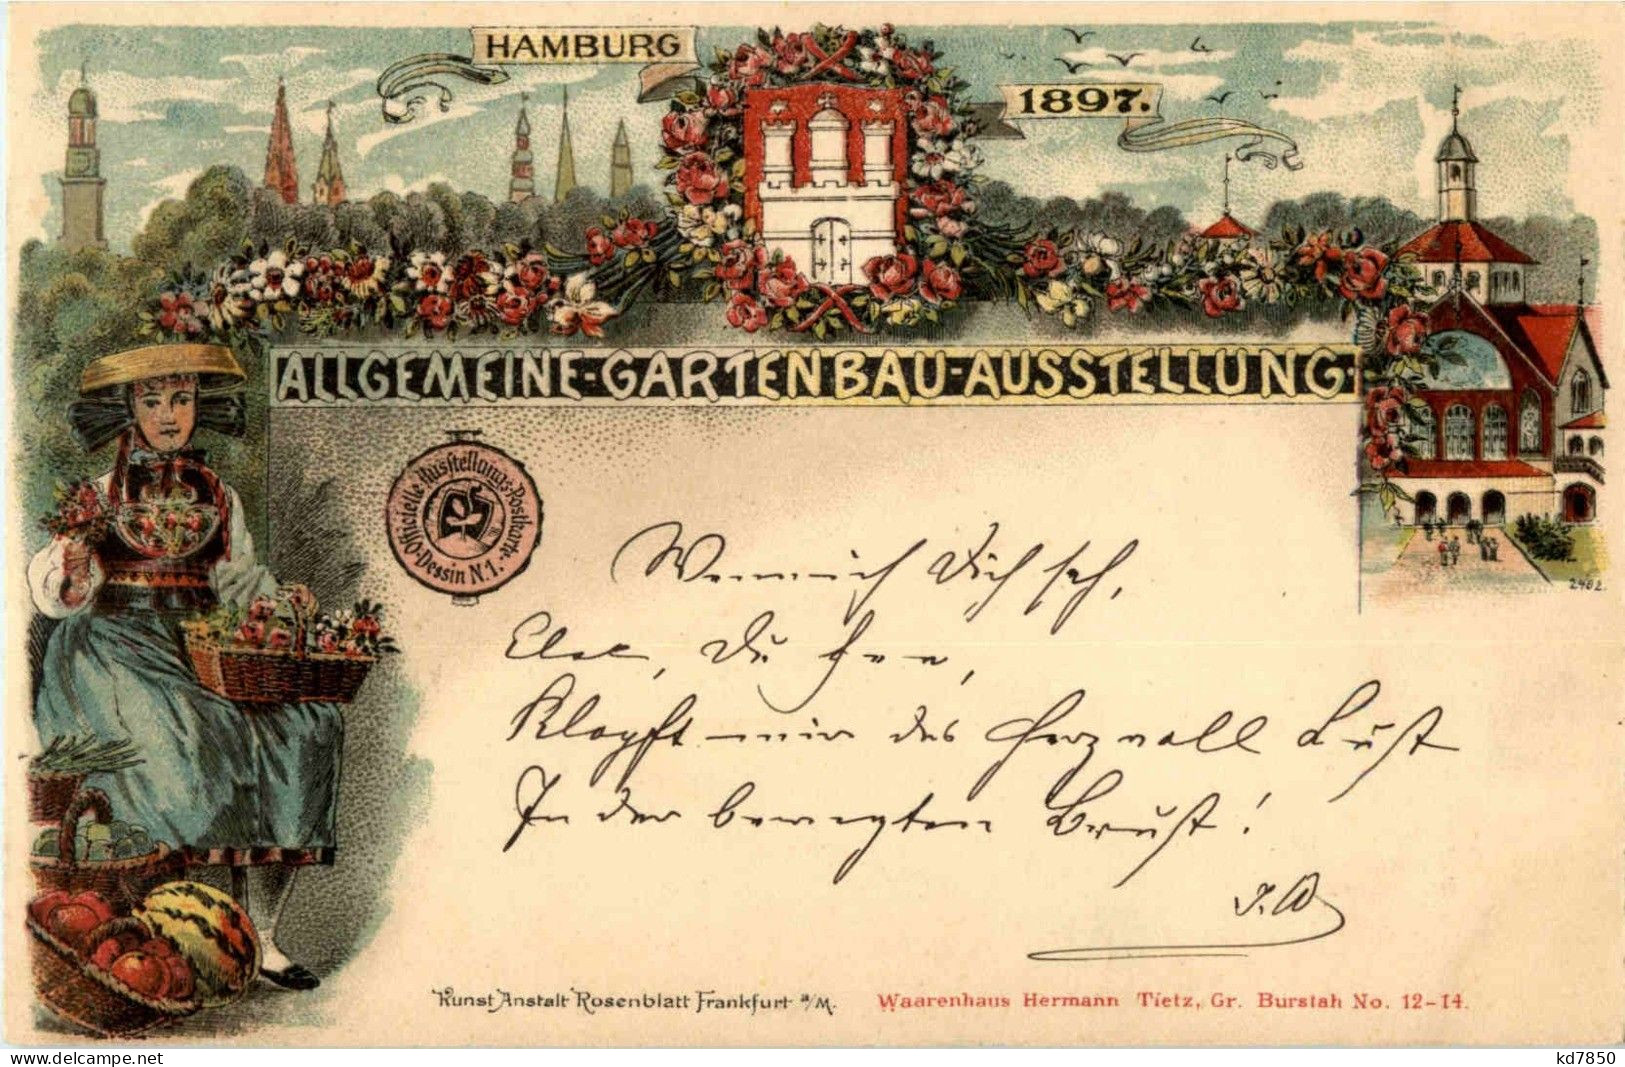 HAMBURG
1897.
ALLGEMEINE-GARTENBAU-AUSSTELLUNG.
Officielle Ausstellungs-Postkarte
Dessin N.1.
2402.
Wenn ich Dich seh,
Else, Du
Klopft mir das Herz voll Lust
In der bewegten Brust!
J.W
Kunst Anstalt Rosenblatt Frankfurt a/M.
Waarenhaus Hermann Tietz, Gr. Burstah No. 12-14.
www.delcampe.net
kd7850